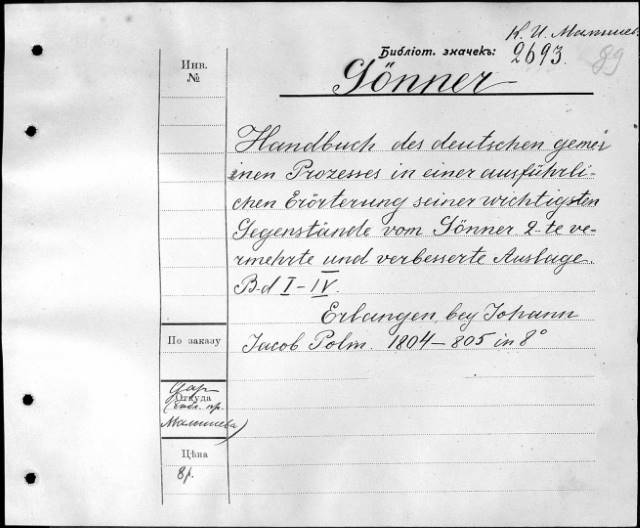 К. И. Малышев
Библіот. значекъ: 2693. 89
Инв.
№
Gönner
Handbuch des deutschen gemei
nen Prozesses in einer ausführli-
chen Erörterung seiner wichtigsten
Gegenstände vom Gönner 2-te ve-
rmehrte und verbesserte Auslage.
B-d I-IV.
Erlangen, bey Johann
По заказу
Jacob Palm. 1804-805 in 8°
Дар
Откуда
Малышева)
Цѣна
8 р.